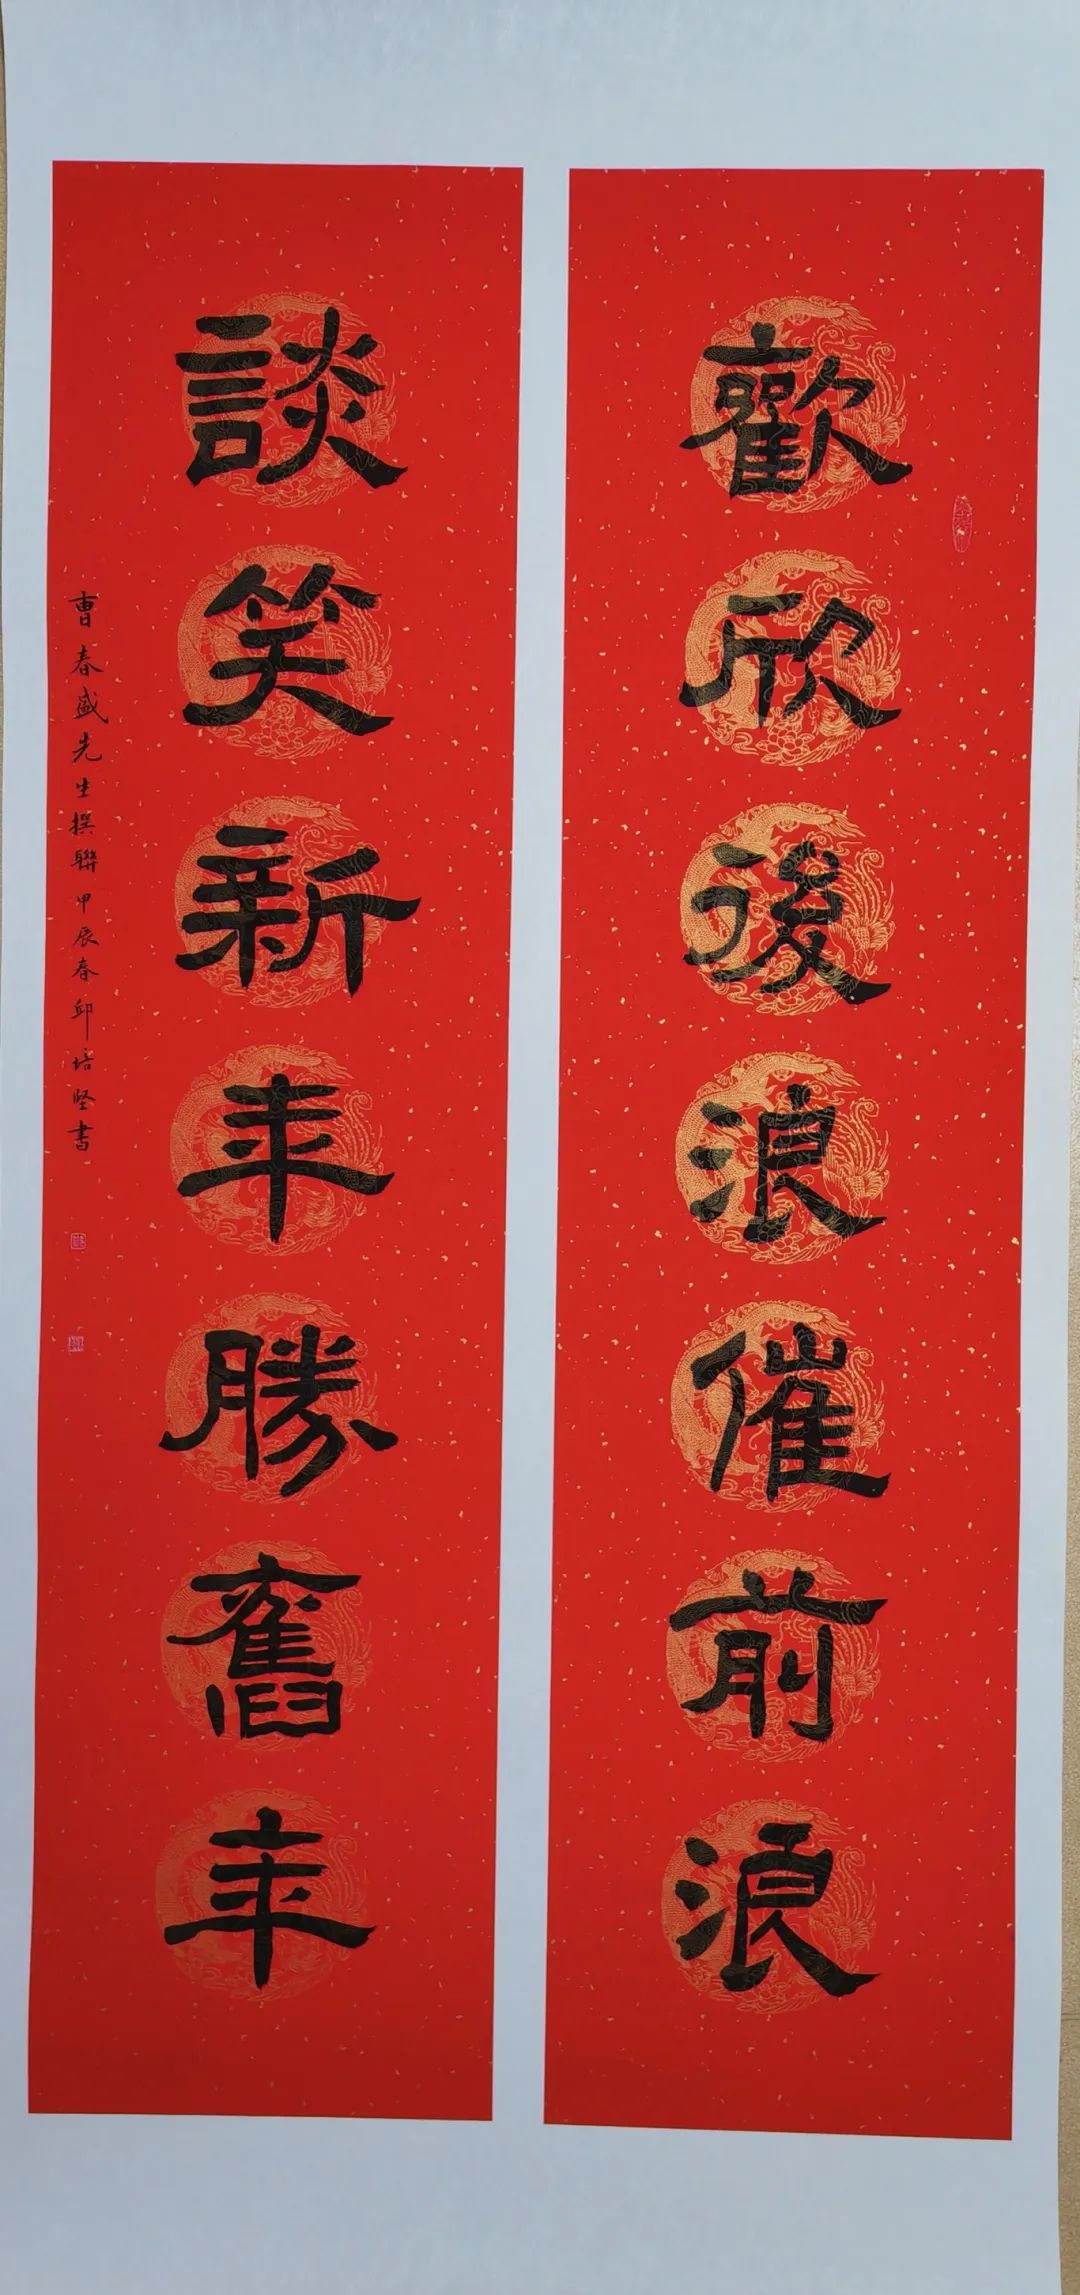 歡欣後浪催前浪
談笑新年勝舊年
曹春盛先生撰聯甲辰春邱培堅書